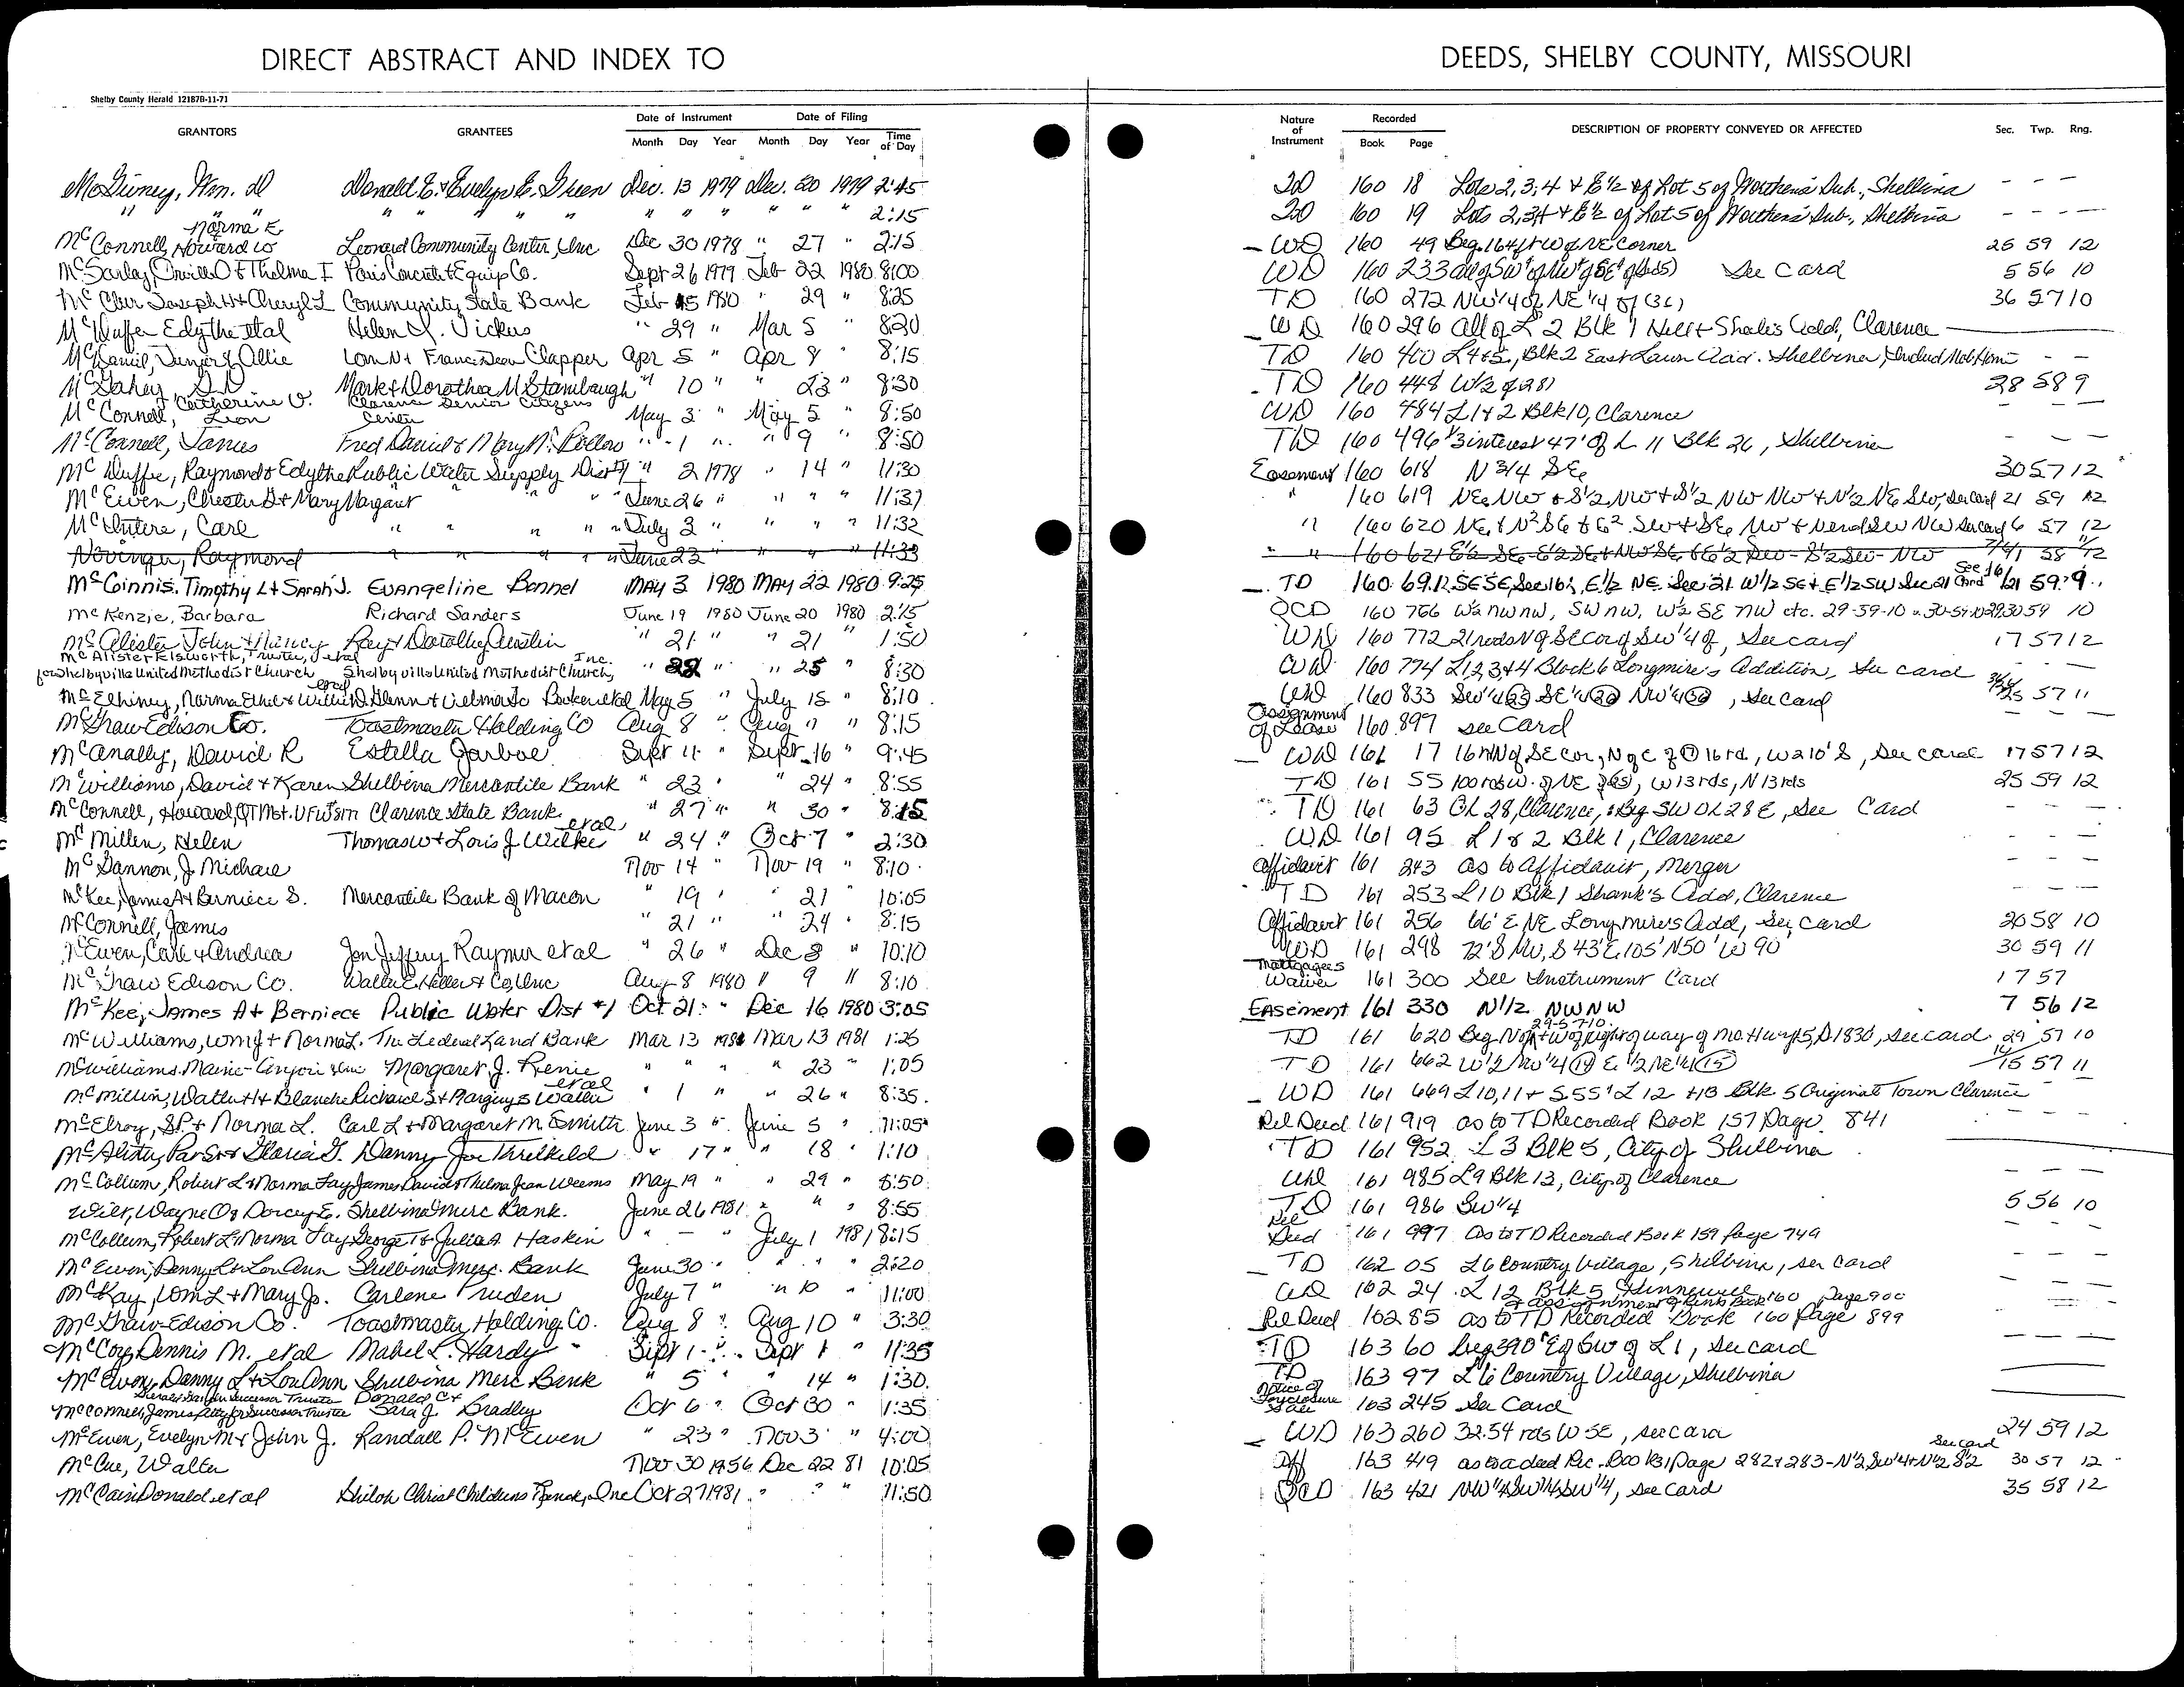 DIRECT ABSTRACT AND INDEX TO
DEEDS, SHELBY COUNTY, MISSOURI
Shelby County Herald 12187B-11-71
GRANTORS GRANTEES Date of Instrument Month Day Year Date of Filing Month Day Year Time of Day
Nature of Instrument Recorded Book Page DESCRIPTION OF PROPERTY CONVEYED OR AFFECTED Sec. Twp. Rng.
Wm. D Donald E. & Evelyn E. Green Dec. 13 1979 Dec. 20 1979 2:45 160 18 Lots 2, 3, 4 & E½ of Lot 5 of Sub., Shelbina - - -
" " " " " " " " " " " " " 2:15 160 19 Lots 2, 3, 4 & E½ of Lot 5 of Sub., Shelbina - - - -
McConnell, Howard W Norma E Leonard Community Center, Inc Dec 30 1978 " 27 " 2:15 WD 160 49 Beg. 164 ft W of NE Corner 25 59 12
Orville O & Thelma I Paris Concrete & Equip Co. Sept 26 1979 Feb 22 1980 8:00 WD 160 233 See Card 5 56 10
Joseph H & Cheryl L Community State Bank Feb 15 1980 " 29 " 8:25 TD 160 272 NW¼ of NE¼ of (36) 36 57 10
McDuffee Edythe etal Helen Y. Vickers " 29 " Mar 5 " 8:20 WD 160 296 All of L 2 Blk 1 Add, Clarence
McDaniel, Junior & Allie Clapper Apr 5 " Apr 8 " 8:15 TD 160 400 L 4 & 5, Blk 2 East Lawn Add. Shelbina, - -
McGahey, Mark & Dorothea M Stambaugh " 10 " " 23 " 8:30 TD 160 448 W/2 of 28) 28 58 9
McConnell, Catherine V. Leon Clarence Senior Citizens Center May 3 " May 5 " 8:50 WD 160 484 L 1 & 2 Blk 10, Clarence - - -
McConnell, James Fred Daniel & Mary N. Bollow " 1 " " 9 " 8:50 TD 160 496 1/3 interest 47' of L 11 Blk 26, Shelbina - - -
McDuffie, Raymond & Edythe Public Water Supply Dist #1 " 2 1978 " 14 " 11:30 Easement 160 618 N 3/4 SE 30 57 12
McEwen, Chester D & Mary Margaret " " " " June 26 " " " " 11:31 " 160 619 NE NW & S½ NW & S½ NW NW & N½ NE SW, See Card 21 59 12
McIntire, Carl " " " " July 3 " " " " 11:32 " 160 620 See Card 6 57 12
Novinger, Raymond " " " " June 23 " " " " 11:33 " " 160 621 58 12
McGinnis, Timothy L & Sarah J. Evangeline Bonnel MAY 3 1980 MAY 22 1980 9:25 TD 160 691 SE SE, Sec 16; E½ NE Sec 21 W½ SE & E½ SW Sec 21 See Card 16/21 59 9
McKenzie, Barbara Richard Sanders June 19 1980 June 20 1980 2:15 QCD 160 766 W½ NW NW, SW NW, W½ SE NW etc. 29-59-10 10
McAlister John & Nancy Ray & Dorothy Austin " 21 " " 21 " 1:50 WD 160 772 21 rods N of SE Cor of SW¼ of, See card 17 57 12
McAlister Elsworth, Trustee, etal for Shelbyville United Methodist Church Shelbyville United Methodist Church, Inc. " 22 " " 25 " 8:30 WD 160 774 L 1, 2, 3 & 4 Block 6 Longmire's Addition, See card - - -
McElhiney, Norma Ethel & Willie D etal Glenn & Velma Jo etal May 5 " July 15 " 8:10 WD 160 833 , See card 57 11
McGraw Edison Co. Toastmaster Holding Co Aug 8 " Aug " " 8:15 Assignment of Lease 160 897 see Card - - -
McAnally, David R Estella Garboe Sept 11 " Sept 16 " 9:45 WD 161 17 , See card 17 57 12
McWilliams, David & Karen Shelbina Mercantile Bank " 23 " " 24 " 8:55 TD 161 55 100 rds W. of NE , W 13 rds, N 13 rds 25 59 12
McConnell, Howard, Clarence State Bank " 27 " " 30 " 8:15 TD 161 63 OL 28, Clarence, Beg SW OL 28 E, See Card - - -
McMillen, Helen Thomas W & Lois J Wilkie etal " 24 " Oct 7 " 2:30 WD 161 95 L 1 & 2 Blk 1, Clarence - - -
McGannon, J Michael Nov 14 " Nov 19 " 8:10 Affidavit 161 243 as to Affidavit, Merger - - -
McKee, James A & Berniece S. Mercantile Bank of Macon " 19 " " 21 10:05 TD 161 253 L 10 Blk 1 Shank's Add, Clarence - - -
McConnell, James " 21 " " 24 " 8:15 Affidavit 161 256 66' E NE Longmires Add, See card 20 58 10
McEwen, Carl & Andrea Jon Jeffery Raymer etal " 26 " Dec 8 " 10:10 WD 161 298 72' S NW, S 43' E 105' N 50' W 90' 30 59 11
McGraw Edison Co. Walter E. Heller & Co, Inc Aug 8 1980 " 9 " 8:10 Mortgagees Waiver 161 300 See Instrument Card 17 57
McKee, James A & Berniece Public Water Dist #1 Oct 21 " Dec 16 1980 3:05 Easement 161 330 N½ NWNW 7 56 12
McWilliams, Wm J & Norma L. The Federal Land Bank Mar 13 1981 Mar 13 1981 1:25 TD 161 620 , See card 29 57 10
McWilliams, Marie Margaret J. " " " 23 " 1:05 TD 161 662 W½ NW¼ (14) E½ NE¼ (15) 14/15 57 11
McMillin, Walter H & Blanche Richard S & Walter etal " 1 " " 26 " 8:35 WD 161 669 L 10, 11 & S 55' L 12 & 13 Blk 5 Original Town Clarence
McElroy, S.P. & Norma L. Carl L & Margaret M. Smith June 3 " June 5 " 11:05 Rel Deed 161 919 as to TD Recorded Book 157 Page 841 - - -
Gloria G. Danny Joe Threlkeld " 17 " " 18 " 1:10 TD 161 952 L 3 Blk 5, City of Shelbina
McCollum, Robert L & Norma Fay James David & Thelma Jean Weems May 19 " " 29 " 8:50 WD 161 985 L 9 Blk 13, City of Clarence - - -
Wilt, Wayne O & Dorcey E. Shelbina Merc Bank. June 26 1981 " " " 8:55 TD 161 986 SW¼ 5 56 10
McCollum, Robert L & Norma Fay George T & Julia A Haskin " - " July 1 1981 8:15 Rel Deed 161 997 As to TD Recorded Book 159 Page 749 - - -
McEwen, Danny L & Lou Ann Shelbina Merc. Bank June 30 " " " " 2:20 TD 162 05 L 6 Country Village, Shelbina, See card - - -
McKay, Wm L & Mary Jo. Carlene Pruden July 7 " " 10 " 11:00 WD 162 24 L 12 Blk 5 Hunnewell - - -
McGraw-Edison Co. Toastmaster Holding Co. Aug 8 " Aug 10 " 3:30 Rel Deed 162 85 as to TD Recorded Book 160 Page 899 & assignment of Rents Book 160 Page 900
McCoy, Dennis M. etal Mabel L. Hardy Sept 1 " Sept 1 " 11:35 TD 163 60 beg 390' E of SW of L 1, See card - - -
McEwen, Danny L & Lou Ann Shelbina Merc Bank " 5 " " 14 " 1:30 TD 163 97 L 6 Country Village, Shelbina
McConnell, James Successor Trustee Donald C & Sara J. Bradley Oct 6 " Oct 30 " 1:35 Notice of Foreclosure Sale 163 245 See Card
McEwen, Evelyn M & John J. Randall P. McEwen " 23 " Nov 3 " 4:00 WD 163 260 32.54 rds W SE, see card 24 59 12
McCue, Walter Nov 30 1956 Dec 22 81 10:05 163 419 as to a deed Rec. Book 131 Page 282 & 283 - N½ SW¼ & N½ S½ See card 30 57 12
McCain Donald etal Shiloh Christ Childrens Ranch, Inc Oct 27 1981 " " " 11:50 QCD 163 421 NW¼ SW¼ SW¼, See card 35 58 12